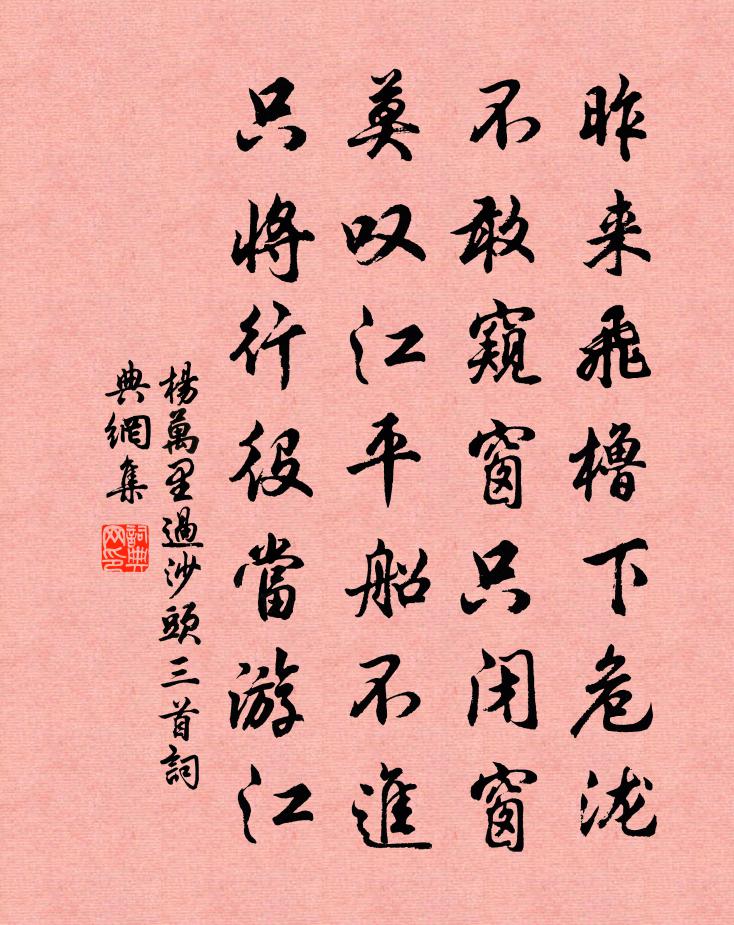 昨来飛櫓下危泷
不敢窺窗只闭窗
莫叹江平船不進
只將行役當游江
楊萬里過沙頭三首詞
典網集
詞典
网印